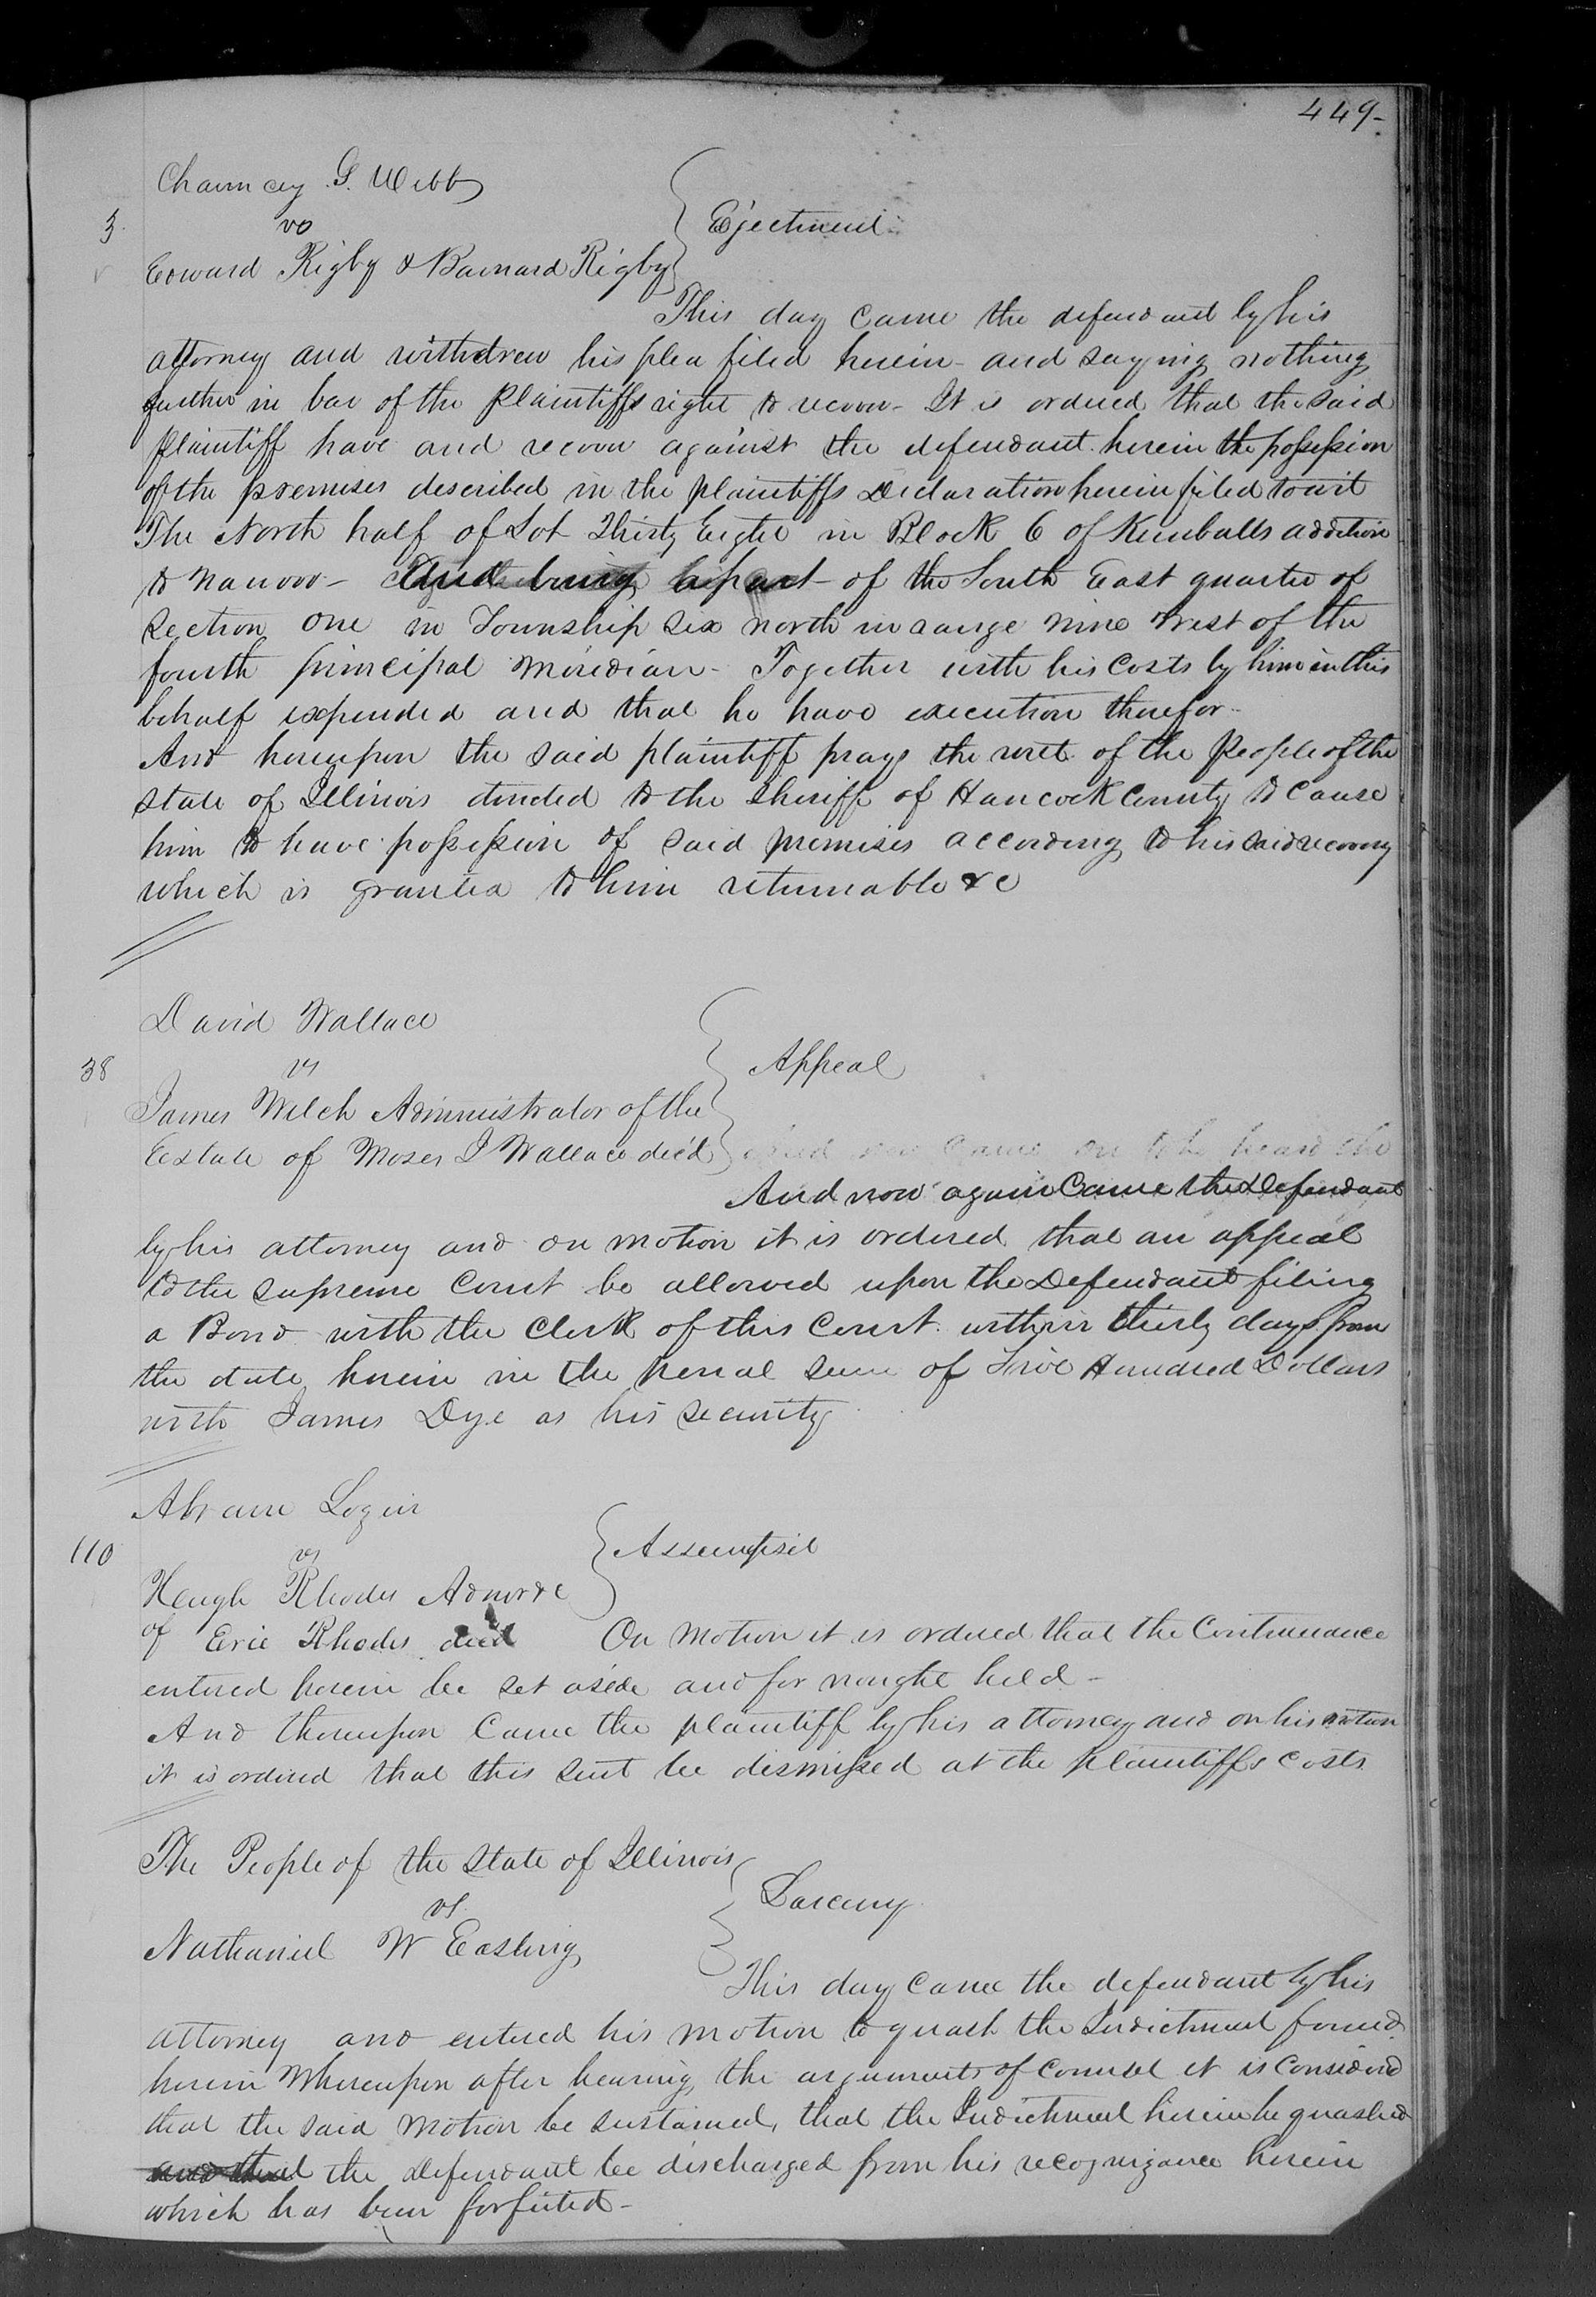 449-
Chauncey G. Webb
3. vs Ejectment
Edward Rigby & Barnard Rigby
This day came the defendant by his
attorney and withdrew his plea filed herein - and saying nothing
further in bar of the Plaintiffs right to recover - It is ordered that the said
plaintiff have and recover against the defendant herein the possession
of the premises described in the plaintiffs Declaration herein filed towit
The North half of Lot Thirty Eight in Block 6 of Kimballs addition
to Nauvoo - And being a part of the South East quarter of
section one in Township six north in range nine West of the
fourth principal Meridian - Together with his costs by him in this
behalf expended and that he have execution therefor -
And hereupon the said plaintiff prays the writ of the People of the
state of Illinois directed to the Sheriff of Hancock County to cause
him to have possession of said premises according to his said recovery
which is granted to him returnable &c
David Wallace
38 vs Appeal
James Welch Administrator of the
Estate of Moses J Wallace dec'd
And now again Came the Defendant
by his attorney and on motion it is ordered that an appeal
to the supreme Court be allowed upon the Defendant filing
a Bond with the Clerk of this Court within thirty days from
the date herein in the penal sum of Five Hundred Dollars
with James Dye as his security
Abram Login
110 vs Assumpsit
Heugh Rhodes Admor &c
of Eric Rhodes decd On Motion it is ordered that the Continuance
entered herein be set aside and for nought held -
And thereupon Came the plaintiff by his attorney and on his motion
it is ordered that this suit be dismissed at the plaintiffs costs
The People of the State of Illinois
vs. Larceny
Nathaniel W Easling
This day came the defendant by his
attorney and entered his motion to quash the Indictment found
herein Whereupon after hearing the arguments of counsel it is considered
that the said Motion be sustained, that the Indictment herein be quashed
and that the Defendant be discharged from his recognizance herein
which has been forfeited -